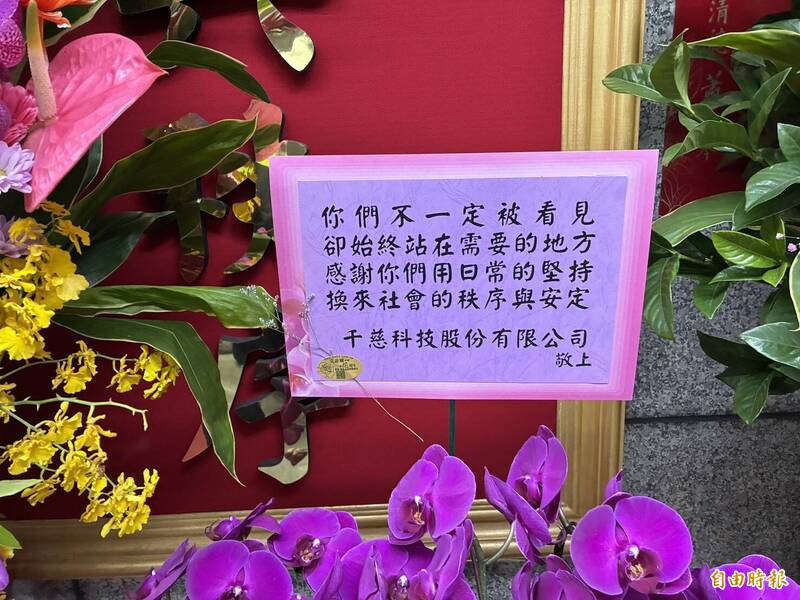 你們不一定被看見
卻始終站在需要的地方
感謝你們用日常的堅持
換來社會的秩序與安定
千慈科技股份有限公司
敬上
自由時報